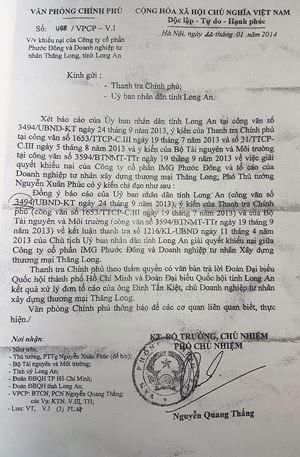 VĂN PHÒNG CHÍNH PHỦ
CỘNG HÒA XÃ HỘI CHỦ NGHĨA VIỆT NAM
Độc lập - Tự do - Hạnh phúc
Số: /VPCP – V.I
Hà Nội, ngày 22 tháng 01 năm 2014
V/v khiếu nại của Công ty cổ phần
Phước Đông và Doanh nghiệp tư
nhân Thăng Long, tỉnh Long An
Kính gửi :
- Thanh tra Chính phủ;
- Uỷ ban nhân dân tỉnh Long An.
Xét báo cáo của Ủy ban nhân dân tỉnh Long An tại công văn số
3494/UBND-KT ngày 24 tháng 9 năm 2013, ý kiến của Thanh tra Chính phủ
tại công văn số 1653/TTCP-C.III ngày 19 tháng 7 năm 2013 và số 31/TTCP-
C.III ngày 5 tháng 8 năm 2013 và ý kiến của Bộ Tài nguyên và Môi trường
tại công văn số 3594/BTNMT-TTr ngày 19 tháng 9 năm 2013 về việc giải
quyết khiếu nại của Công ty cổ phần IMG Phước Đông và tố cáo của
Doanh nghiệp tư nhân xây dựng thương mại Thăng Long; Phó Thủ tướng
Nguyễn Xuân Phúc có ý kiến chỉ đạo như sau :
Đồng ý báo cáo của Uỷ ban nhân dân tỉnh Long An (công văn số
3494/UBND-KT ngày 24 tháng 9 năm 2013), ý kiến của Thanh tra Chính
phủ (công văn số 1653/TTCP-C.III ngày 19 tháng 7 năm 2013) và của Bộ
Tài nguyên và Môi trường (công văn số 3594/BTNMT-TTr ngày 19 tháng 9
năm 2013) về kết luận thanh tra số 1216/KL-UBND ngày 11 tháng 4 năm
2013 của Chủ tịch Uỷ ban nhân dân tỉnh Long An giải quyết khiếu nại giữa
Công ty cổ phần IMG Phước Đông và Doanh nghiệp tư nhân Xây dựng
thương mại Thăng Long.
Thanh tra Chính phủ theo thẩm quyền có văn bản trả lời Đoàn Đại biểu
Quốc hội thành phố Hồ Chí Minh và Đoàn Đại biểu Quốc hội tỉnh Long An
kết quả xử lý đơn tố cáo của ông Đinh Tấn Kiệt, chủ Doanh nghiệp tư nhân
xây dựng thương mại Thăng Long.
Văn phòng Chính phủ thông báo để các cơ quan liên quan biết, thực
hiện./.
Nơi nhận:
- Như trên,
- Thủ tướng, PTTg Nguyễn Xuân Phúc (để b/c);
- Bộ Tài nguyên và Môi trường;
- Tỉnh uỷ Long An;
- Đoàn ĐBQH TP Hồ Chí Minh;
- Đoàn ĐBQH tỉnh Long An;
- VPCP: BTCN, PCN Nguyễn Quang Thắng;
các Vụ: KTN, V.III, TH;
- Lưu: VT, V.I (3)
KT. BỘ TRƯỞNG, CHỦ NHIỆM
PHÓ CHỦ NHIỆM
Nguyễn Quang Thắng